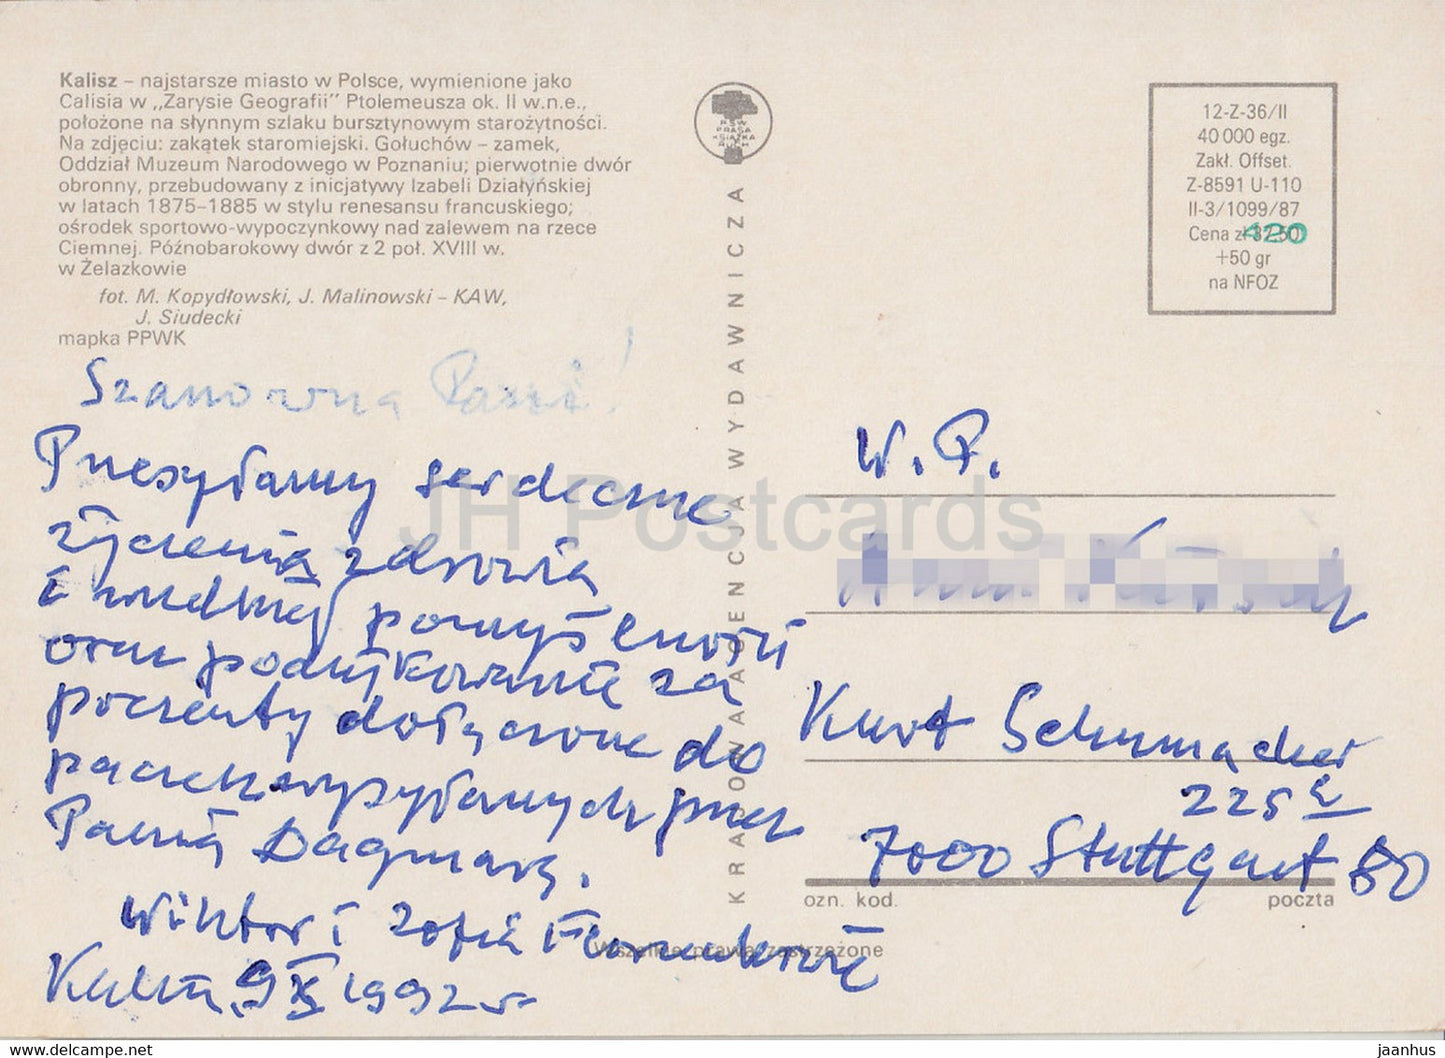 Kalisz – najstarsze miasto w Polsce, wymienione jako
Calisia w „Zarysie Geografii" Ptolemeusza ok. II w.n.e.,
położone na słynnym szlaku bursztynowym starożytności.
Na zdjęciu: zakątek staromiejski. Gołuchów – zamek,
Oddział Muzeum Narodowego w Poznaniu; pierwotnie dwór
obronny, przebudowany z inicjatywy Izabeli Działyńskiej
w latach 1875–1885 w stylu renesansu francuskiego;
ośrodek sportowo-wypoczynkowy nad zalewem na rzece
Ciemnej. Późnobarokowy dwór z 2 poł. XVIII w.
w Żelazkowie
fot. M. Kopydłowski, J. Malinowski – KAW,
J. Siudecki
mapka PPWK
Szanowna Pani!
Przesyłamy serdeczne
życzenia zdrowia
i wszelkiej pomyślności
oraz podziękowanie za
prezenty dołączone do
paczek wysyłanych przez
Panią Dagmarę.
Wiktor i Zofia
9 X 1992 r
RSW
PRASA
KSIĄŻKA
RUCH
KRAJOWA AGENCJA WYDAWNICZA
12-Z-36/II
40 000 egz.
Zakł. Offset.
Z-8591 U-110
II-3/1099/87
Cena zł 37,50
420
+50 gr
na NFOZ
W. P.
Kurt Schumacher
225 E
7000 Stuttgart 80
ozn. kod.
poczta
Wszelkie prawa zastrzeżone
JH Postcards
https://www.delcampe.net
jaanhus